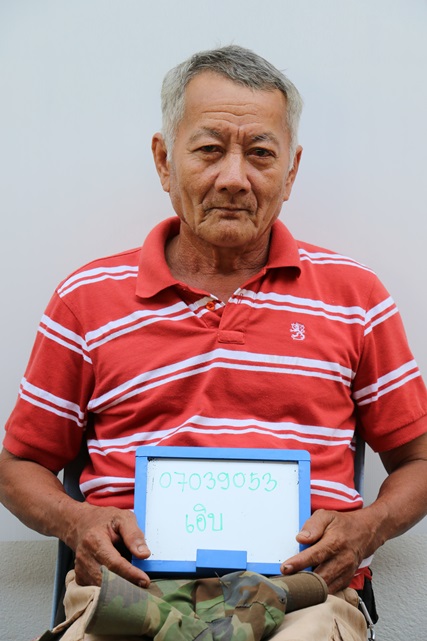 07039053
เอิบ